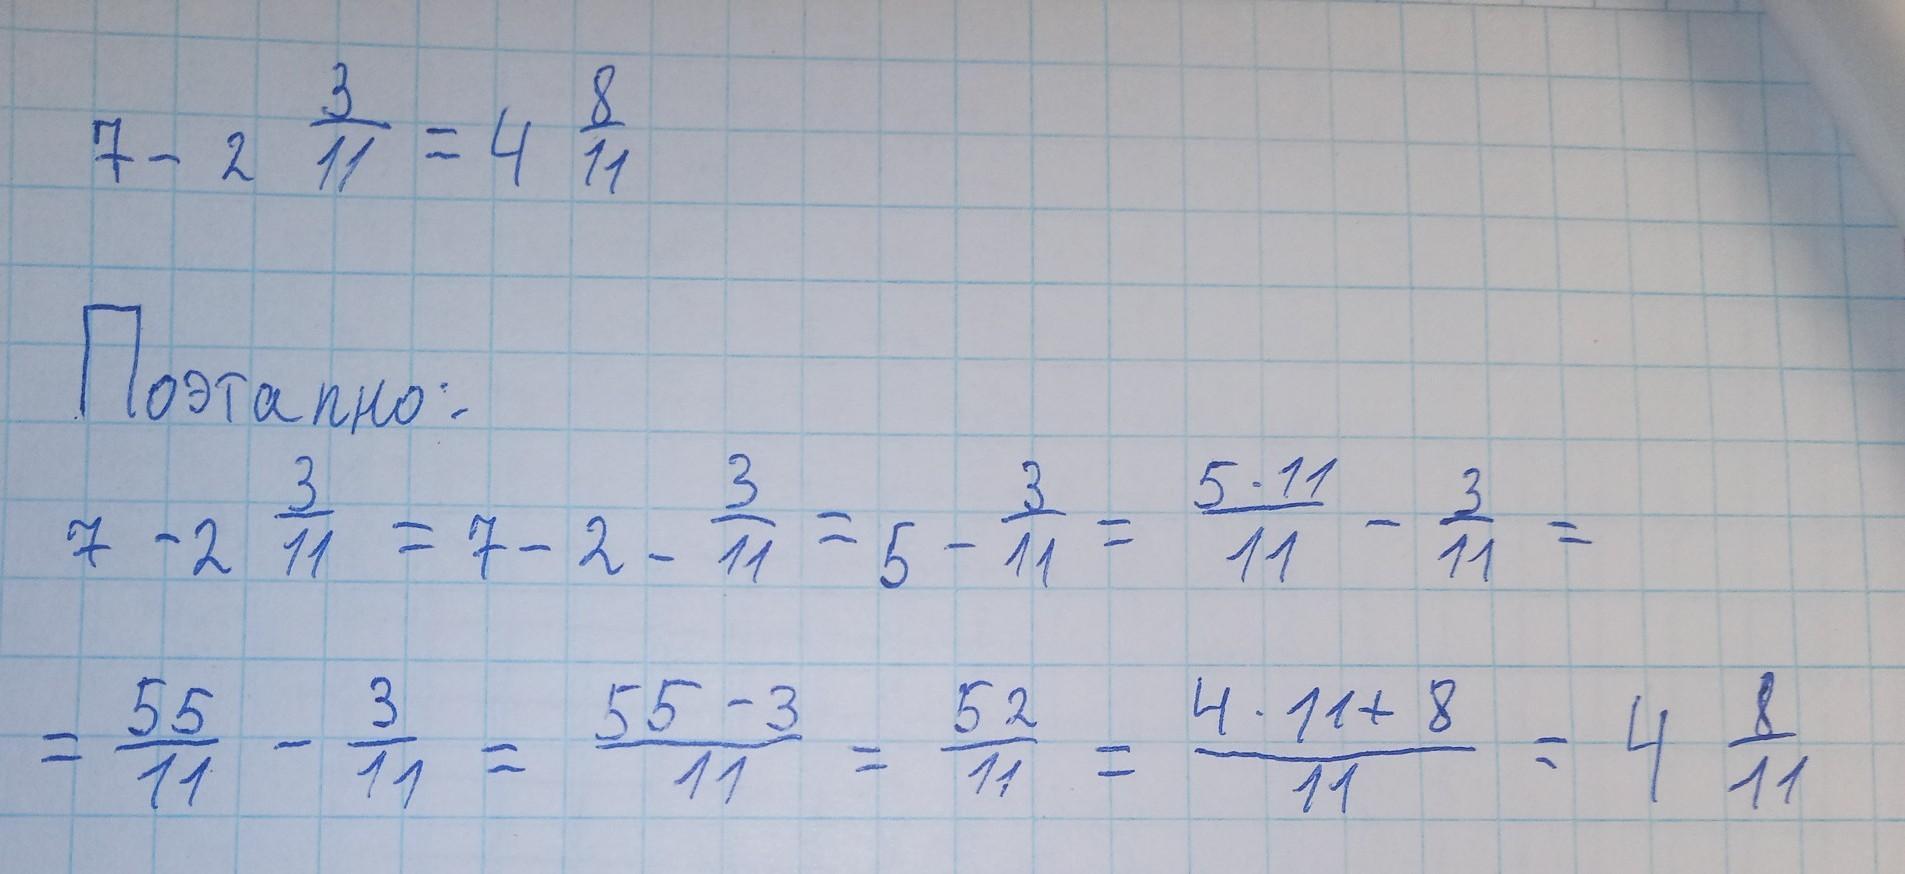 7 - 2 3/11 = 4 8/11
Поэтапно:-
7 - 2 3/11 = 7 - 2 - 3/11 = 5 - 3/11 = 5·11/11 - 3/11 =
= 55/11 - 3/11 = 55-3/11 = 52/11 = 4·11+8/11 = 4 8/11